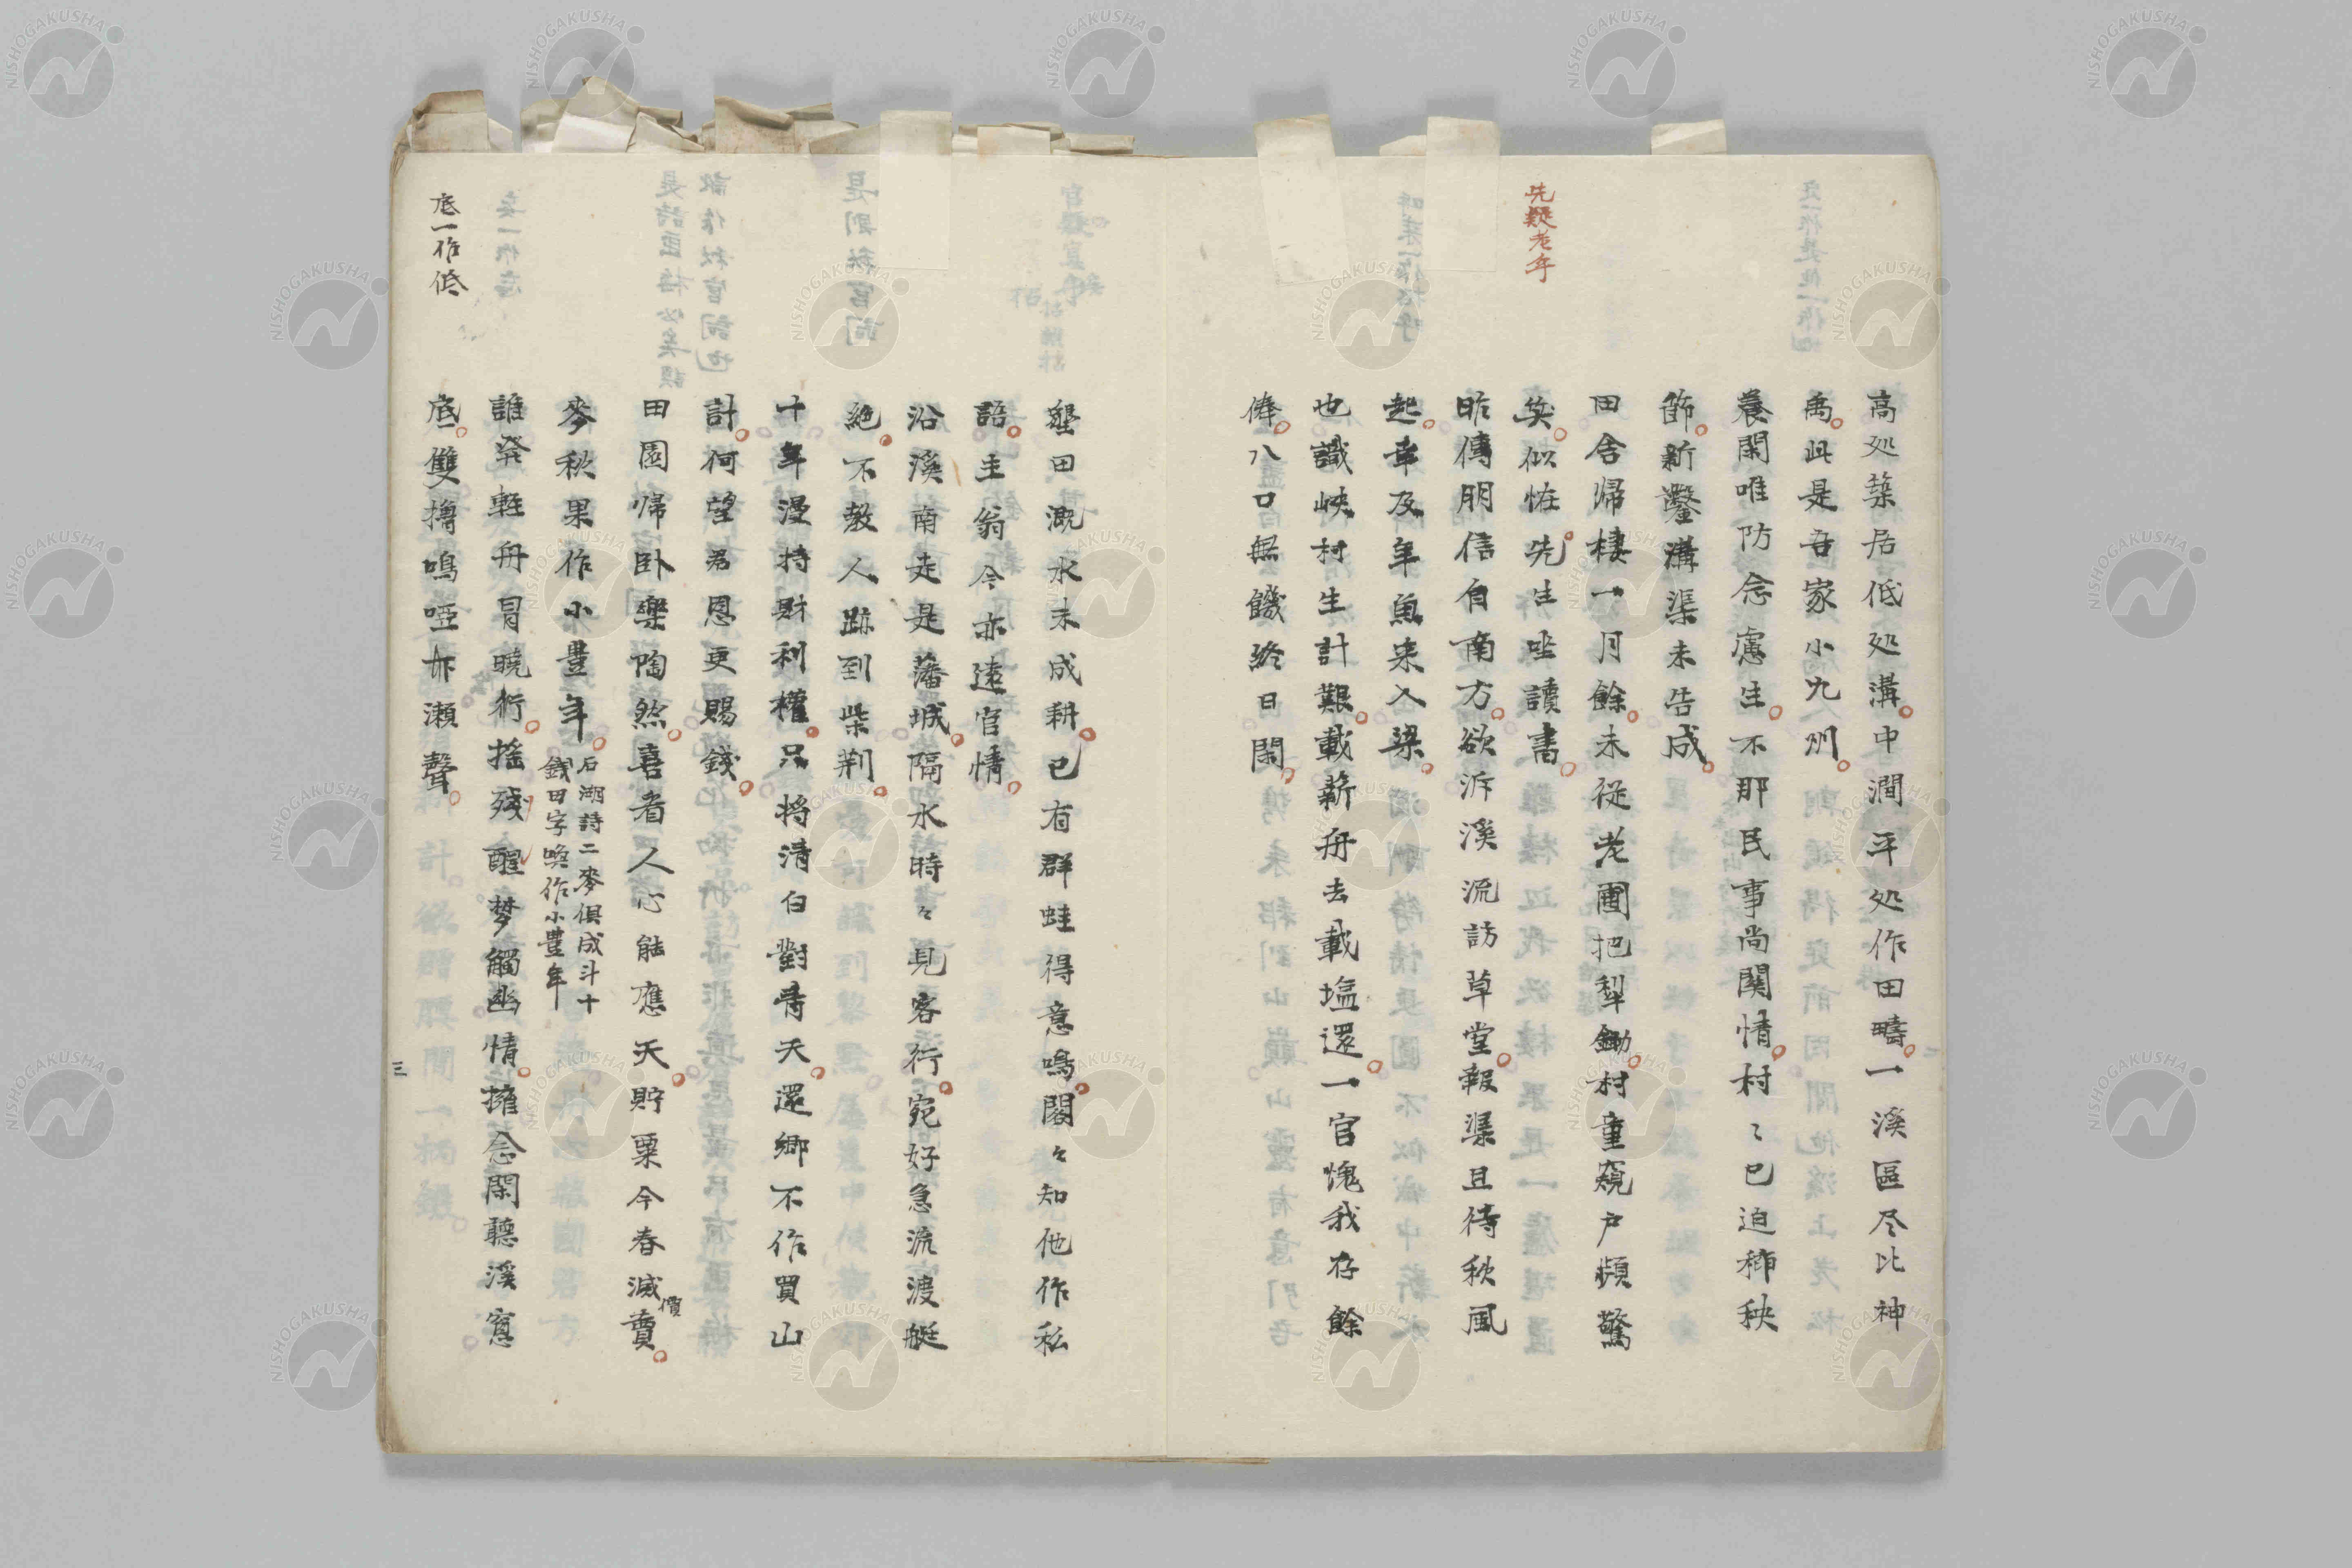 先疑老字
高処築居低処溝中澗平処作田疇一溪區尽比神
禹此是吾家小九州
養閑唯防念慮生不那民事尚関情村〻已迫挿秧
節新鑿溝渠未告成
田舎帰棲一月餘未從老圃把犁鋤村童窺戸頻驚
笑似恠先生坐讀書
昨傳朋信自南方欲泝溪流訪草堂報渠且待秋風
起幸及年魚来入梁
也識峡村生計艱載薪舟去載塩還一官愧我存餘
俸八口無饑終日閑
墾田漑水未成耕已有群蛙得意鳴閣々知他作私
語主翁今亦遠官情
沿溪南走是藩城隔水時々見客行宛好急流渡艇
絶不教人跡到柴荆
十年漫持財利權只将清白對青天還郷不作買山
計何望君恩更賜錢
田園帰卧樂陶然喜者人心能應天貯粟今春減價賣
麥秋果作小豊年
石湖詩二麥俱成斗十
錢田字喚作小豊年
誰発軽舟冒曉行揺残醒夢觸幽情擁念閑聽溪窓
底一作低
底雙㯭鳴啞下瀬聲
三